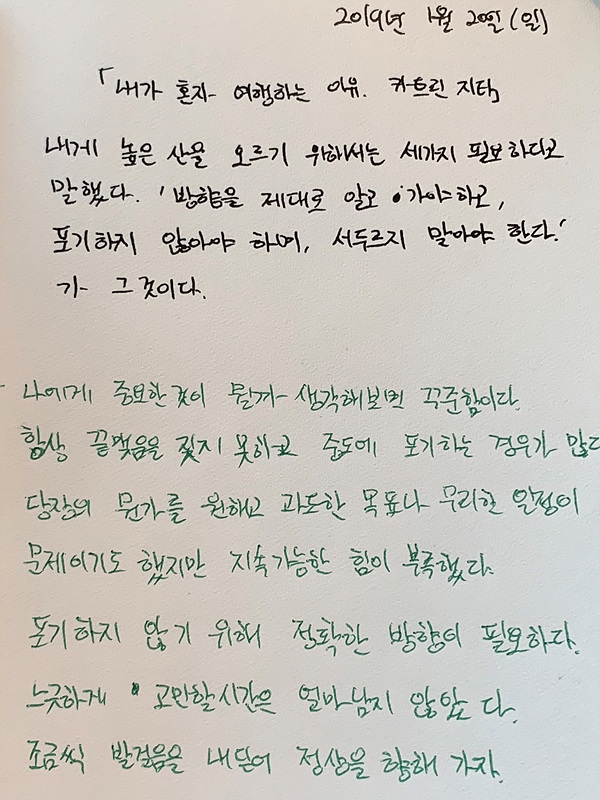 2019년 1월 20일 (일)
「내가 혼자 여행하는 이유. 카트린 지타」
내게 높은 산을 오르기 위해서는 세가지 필요하다고
말했다. '방향을 제대로 알고 가야하고,
포기하지 않아야 하며, 서두르지 말아야 한다.'
가 그것이다.
나에게 중요한 것이 뭘까 생각해보면 꾸준함이다.
항상 끝맺음을 짓지 못하고 중도에 포기하는 경우가 많다
당장의 뭔가를 원하고 과도한 목표나 무리한 일정이
문제이기도 했지만 지속가능한 힘이 부족했다.
포기하지 않기 위해 정확한 방향이 필요하다.
느긋하게 고민할시간은 얼마남지 않았다.
조금씩 발걸음을 내딛어 정상을 향해 가자.